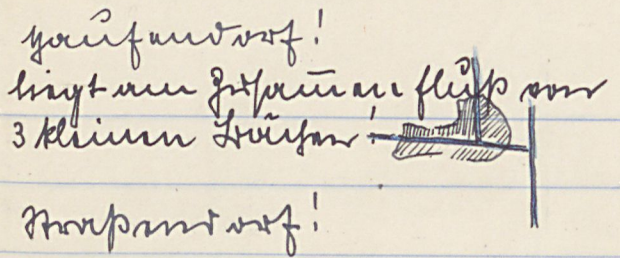 Haufendorf!
liegt am Zusammenfluß von
3 kleinen Bächen!
Straßendorf!